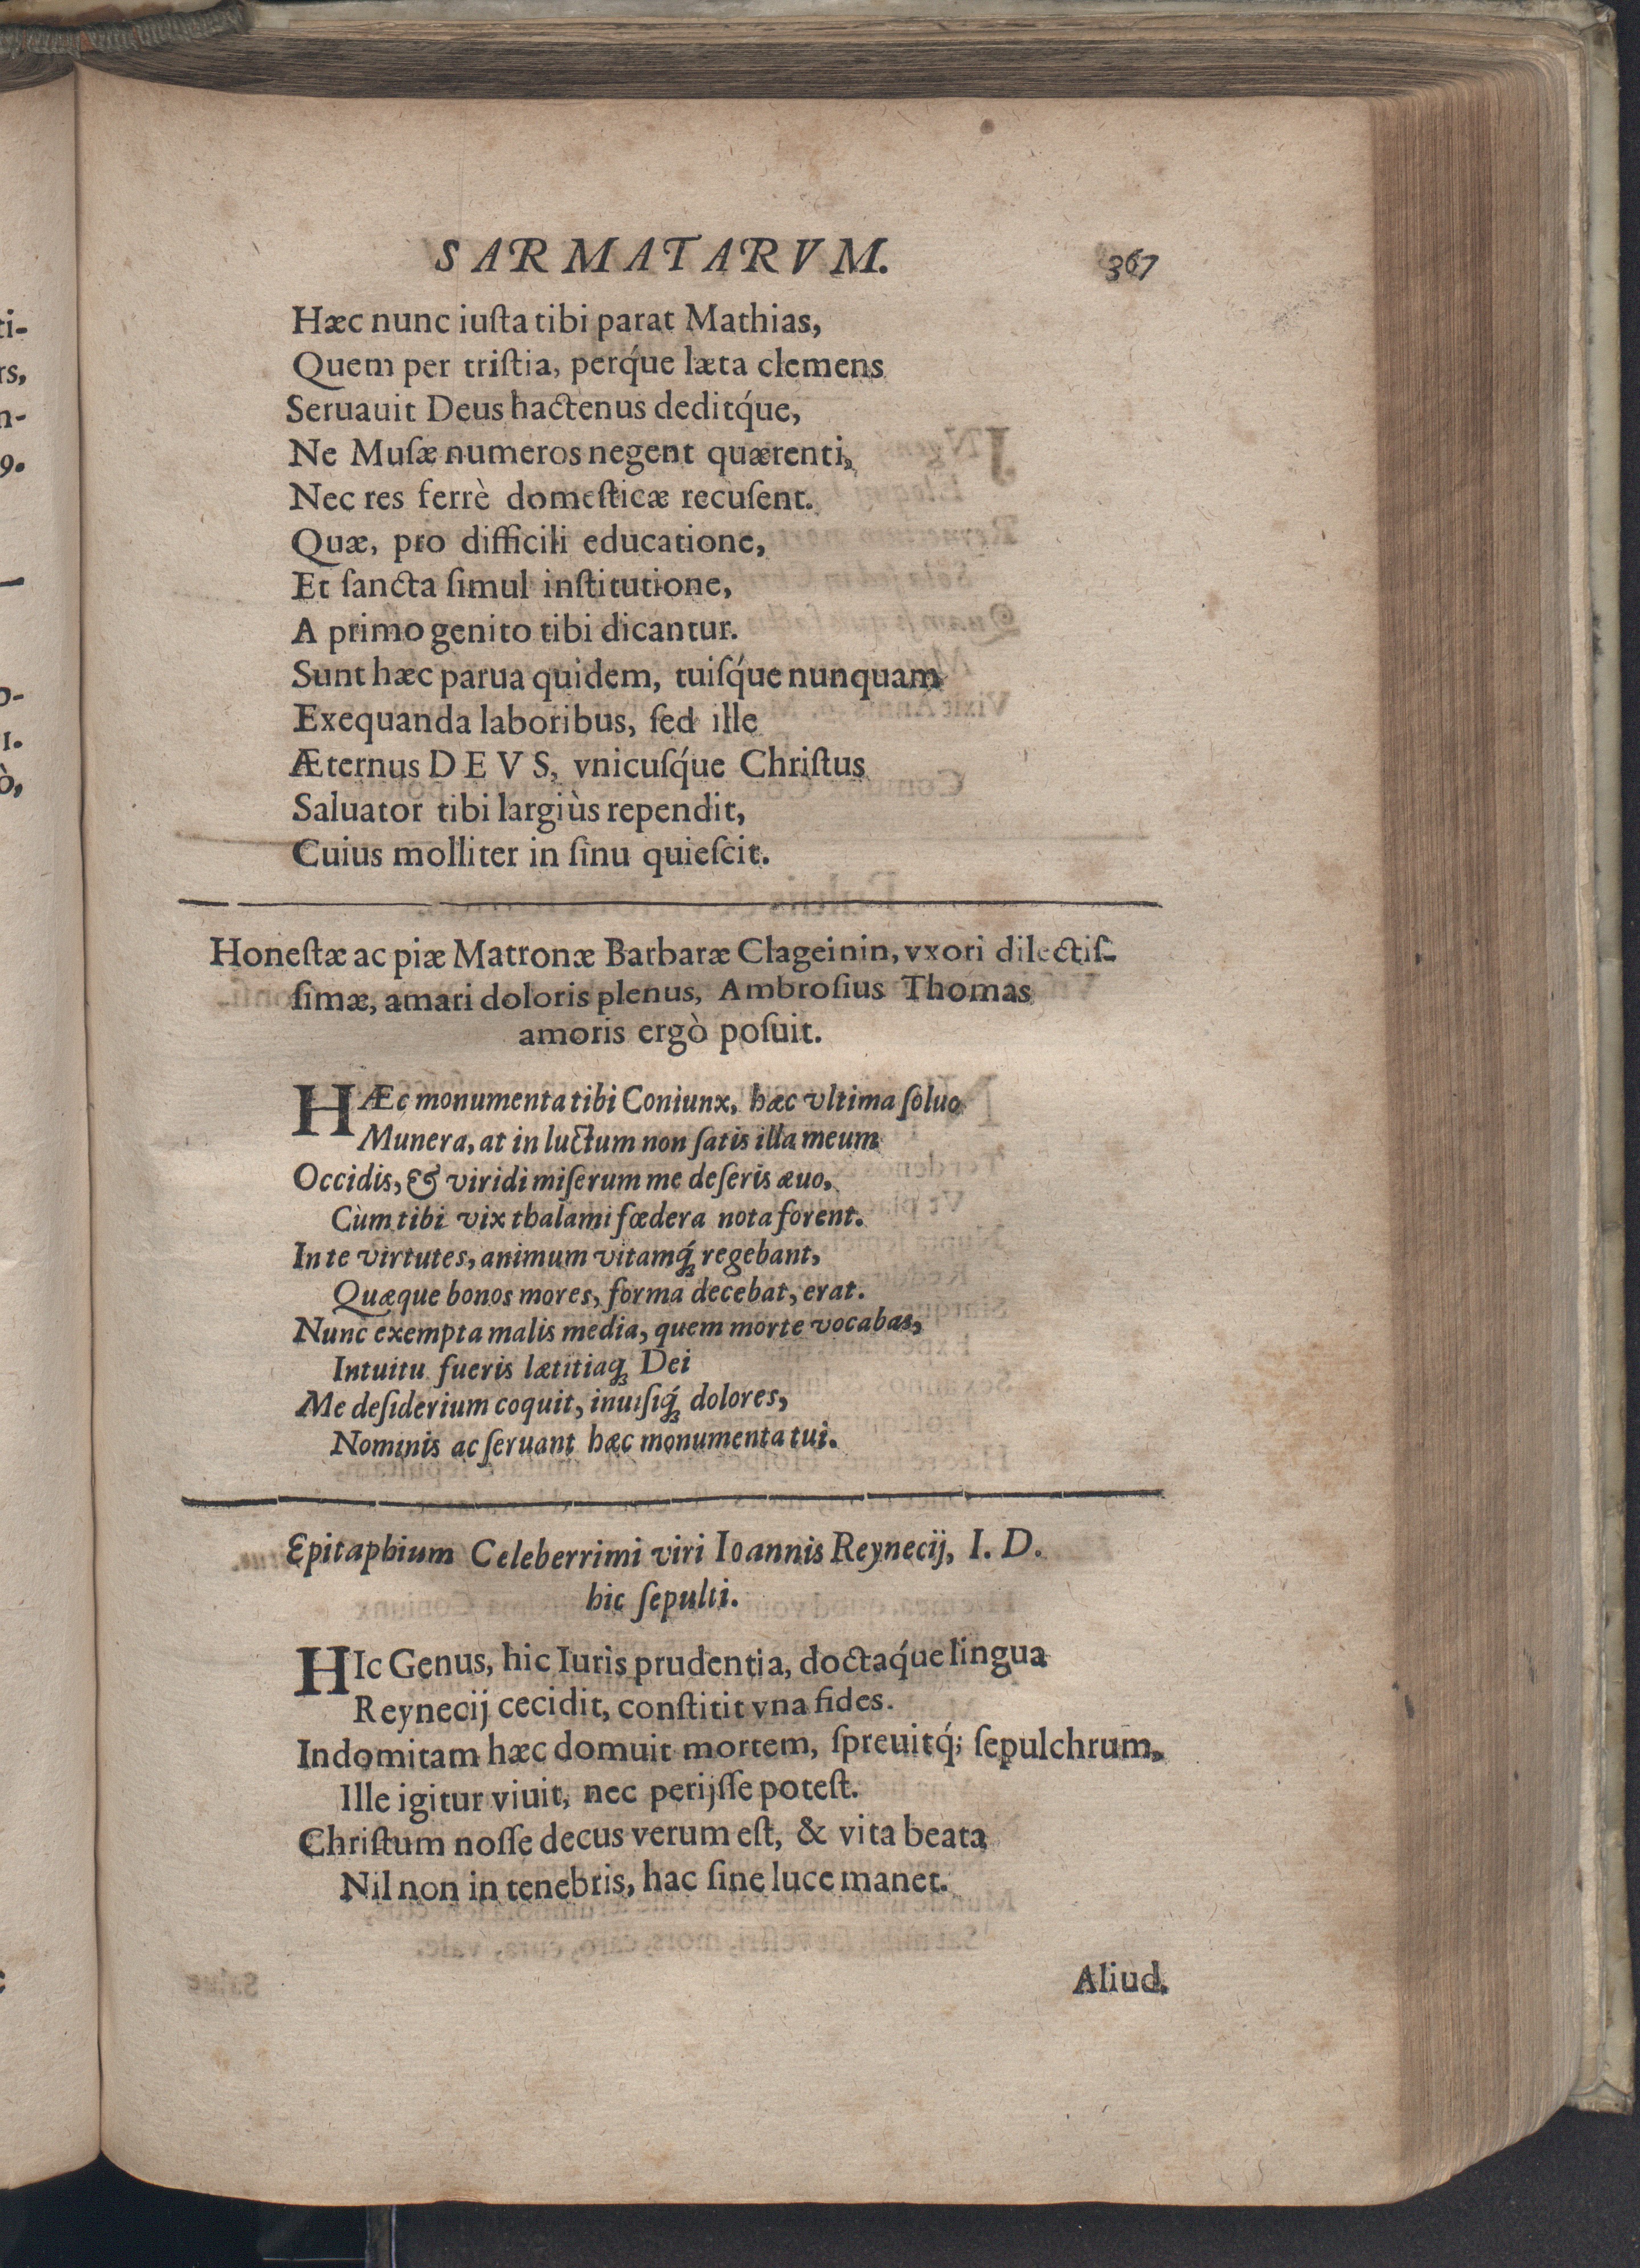 SARMATARVM. 367
Hæc nunc iuſta tibi parat Mathias,
Quem per triſtia, perq́ue læta clemens
Seruauit Deus hactenus deditq́ue,
Ne Muſæ numeros negent quærenti,
Nec res ferrè domeſticæ recuſent.
Quæ, pro difficili educatione,
Et ſancta ſimul inſtitutione,
A primo genito tibi dicantur.
Sunt hæc parua quidem, tuiſq́ue nunquam
Exequanda laboribus, ſed ille
Æternus DEVS, vnicuſq́ue Chriſtus
Saluator tibi largiùs rependit,
Cuius molliter in ſinu quieſcit.
Honeſtæ ac piæ Matronæ Barbaræ Clageinin, vxori dilectiſ-
ſimæ, amari doloris plenus, Ambroſius Thomas
amoris ergò poſuit.
HÆc monumenta tibi Coniunx, hæc vltima ſoluo
Munera, at in luctum non ſatis illa meum
Occidis, & viridi miſerum me deſeris æuo,
Cùm tibi vix thalami fœdera nota forent.
In te virtutes, animum vitamq́ꝫ regebant,
Quæque bonos mores, forma decebat, erat.
Nunc exempta malis media, quem morte vocabas,
Intuitu fueris lætitiaqꝫ Dei
Me deſiderium coquit, inuiſiq́ꝫ dolores,
Nominis ac ſeruant hæc monumenta tui.
Epitaphium Celeberrimi viri Ioannis Reynecij, I. D.
hic ſepulti.
HIc Genus, hic Iuris prudentia, doctaq́ue lingua
Reynecij cecidit, conſtitit vna fides.
Indomitam hæc domuit mortem, ſpreuitq́; ſepulchrum,
Ille igitur viuit, nec perijſſe poteſt.
Chriſtum noſſe decus verum eſt, & vita beata
Nil non in tenebris, hac ſine luce manet.
Aliud.